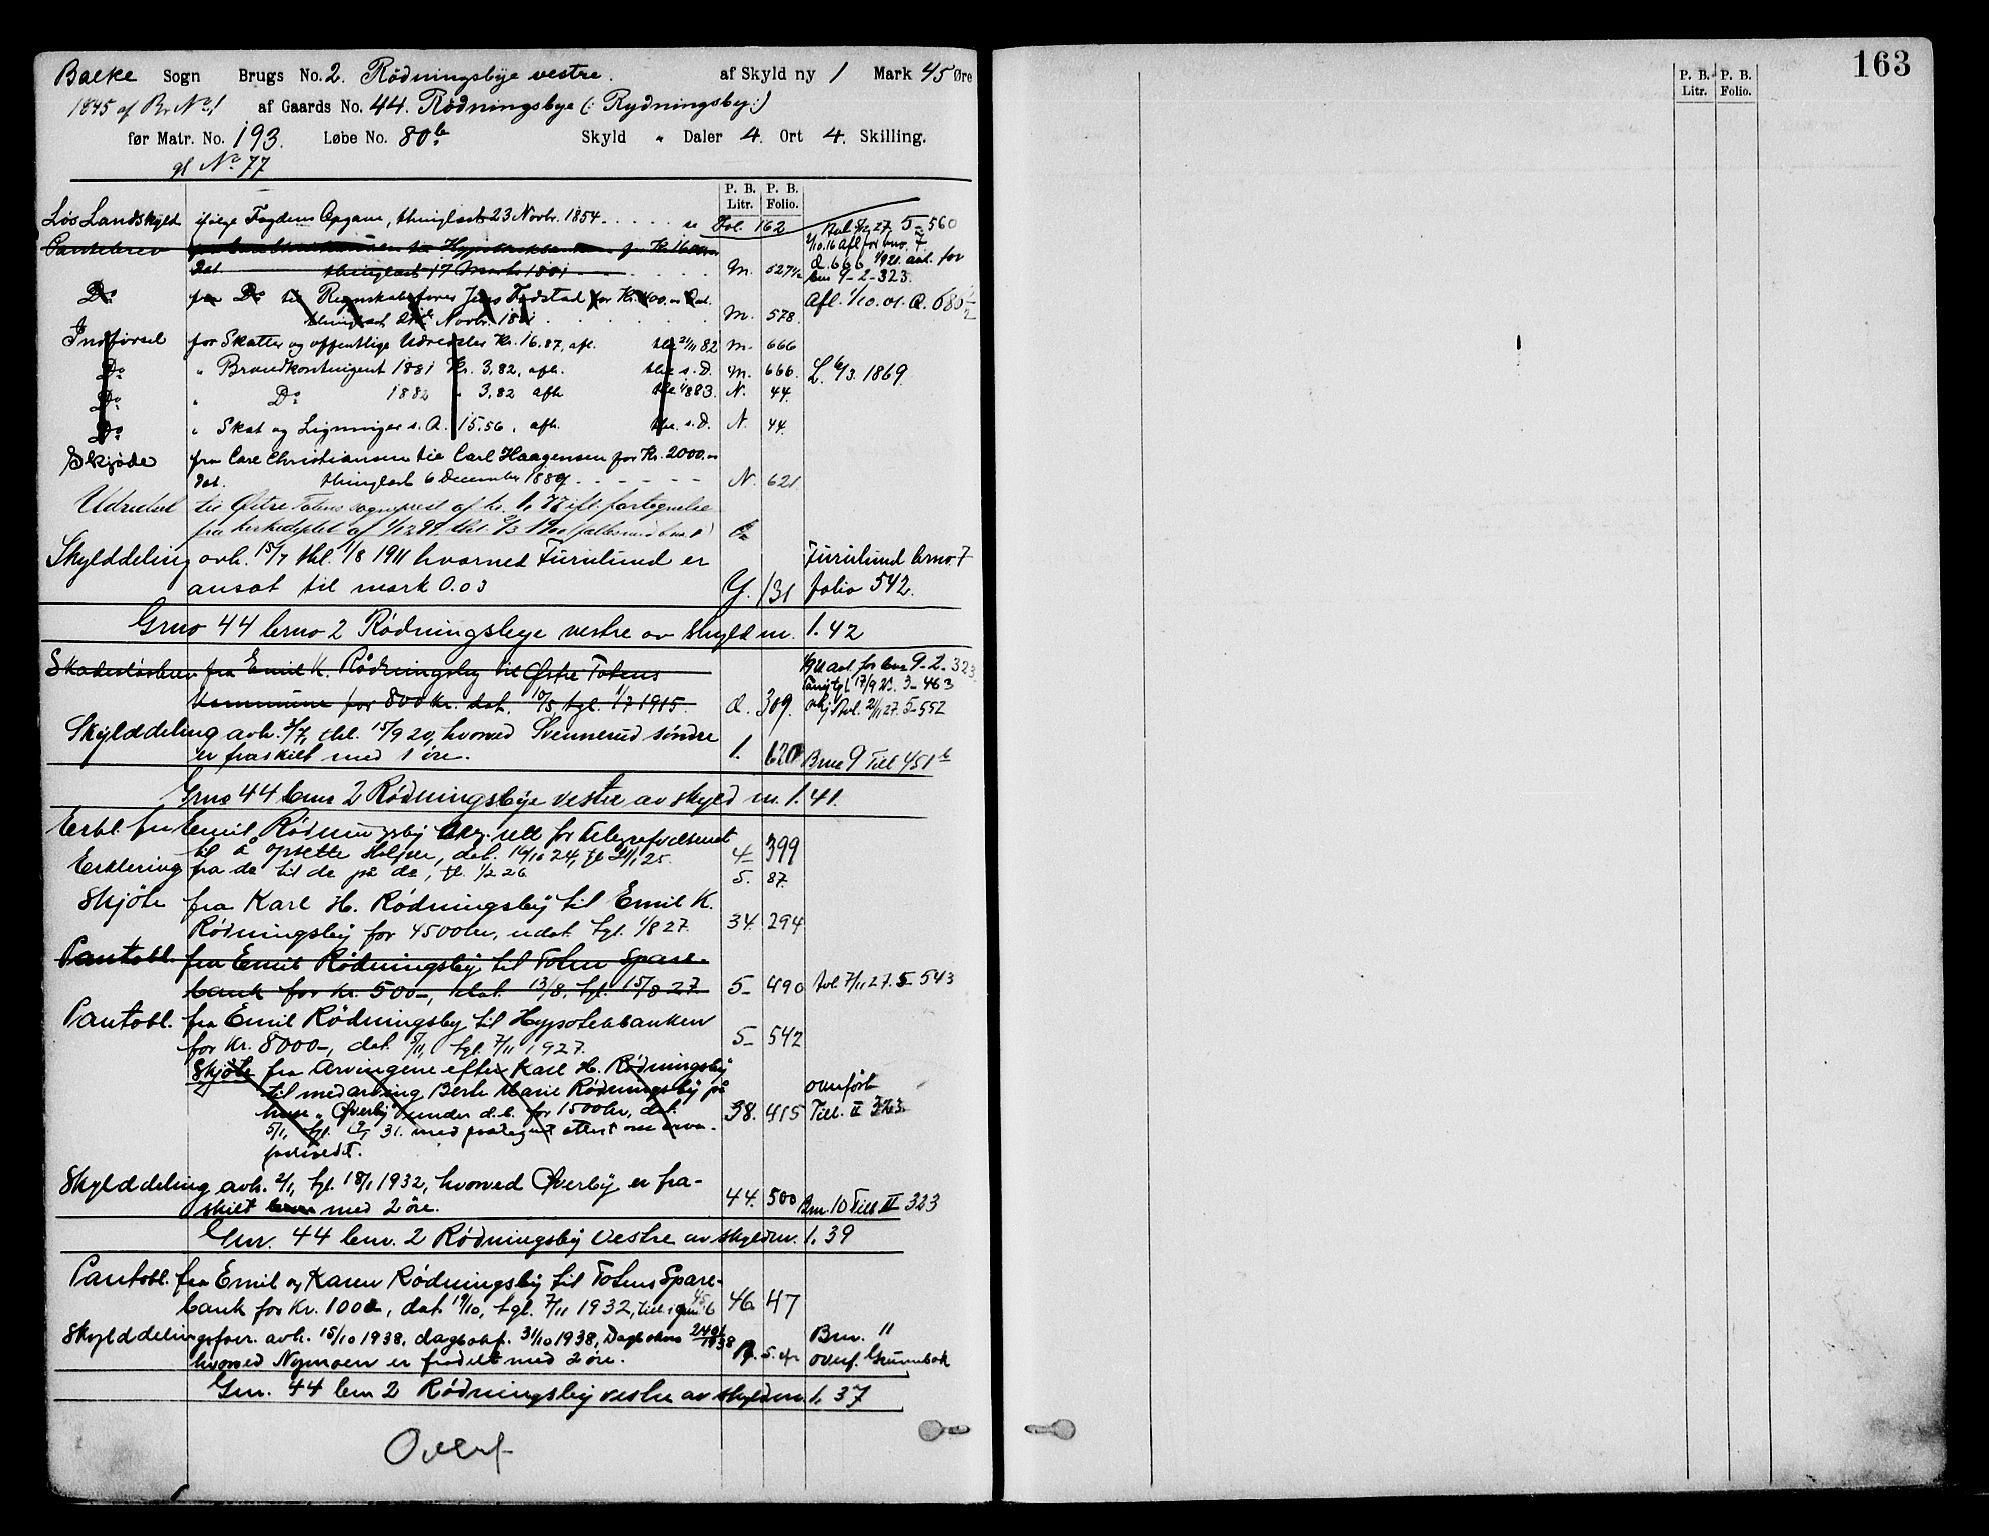 163
Balke Sogn Brugs No. 2. Rödningsbye vestre. af Skyld ny 1 Mark 45 Øre
1845 af Br. No 1 af Gaards No. 44. Rödningsbye (: Rydningsby:)
før Matr. No. 193. Løbe No. 80b. Skyld " Daler 4. Ort 4. Skilling.
gl No. 77
P. B. Litr. P. B. Folio.
Løs Landskyld ifølge Fogdens Opgave, thinglæst 23 Novbr. 1854 se Fol. 162
Avl. 27, 5-560
Pantebrev Hypothekbanken Kr. 1600
dat. thinglæst 17 Marts 1881 M. 527½
bno 9-2-323.
Do fra Do til Regnskabsfører Jens Fodstad for Kr. 400.00 Dat.
thinglæst Novbr. 1881 M. 578.
Afl. 1/10. 01. Q.
Indførsel for Skatter og offentlige Udredsler Kr. 16.87, afh. 21/11 82 M. 666
Do " Brandkontingent 1881 Kr. 3,82, afh. s. D. M. 666.
L. 6/3. 1869.
Do " Do 1882 " 3,82 afh N. 44.
Do " Skat og Ligninger s. A. 15.56, afh. s. D. N. 44.
Skjøde fra Carl Christiansen til Carl Haagensen for Kr. 2000.00
dat. thinglæst 6 December 1889 N. 621
Udredsel til Østre Totens sogneprest af kr. ifl. fortegnelse
fra kirkedeptet af 1/12 99
Skylddeling avh. 15/7 thl. 1/8 1911 hvorved Furulund er
ansat til mark 0.03 Y. 131
Furulund brno. 7
folio 542.
Grno 44 brno 2 Rödningsbye vestre av skyld m. 1.42
Skadesløsbrev fra Emil K. Rödningsby til Østre Totens
kommune for 800 kr. dat. 10/5, tgl. 1/7 1915. d. 309.
avl. for bno 9-2-323
17/9 25. 3-463
21/11 27. 5-552
Skylddeling avh. 3/7, thl. 15/9 20, hvorved Svennerud söndre
er fraskilt med 1 öre. 1. 620
Brno 9 Till 451b
Grno 44 brno 2 Rödningsbye vestre av skyld m. 1.41.
Erkl. fra Emil Rödningsby ang. rett for Telegrafvesenet
til å opsette stolper, dat. 16/10 24, tgl 25. 4- 399
Erklering fra do til do på do, tgl. 1/2 26 5. 87.
Skjöte fra Karl H. Rödningsby til Emil K.
Rödningsby for 4500 kr, udat. tgl. 1/8 27. 34. 294
Pantobl. fra Emil Rödningsby til Toten Spare-
bank for kr. 500-, dat. 13/8, tgl. 15/8 27. 5- 490 Avl 7/11 27. 5-543
Pantobl. fra Emil Rödningsby til Hypotekbanken
for kr. 8000-, dat. 5/11, tgl. 7/11 1927. 5- 542
Skjöte fra Arvingene efter Karl H. Rödningsby
til medarving Berte Marie Rödningsby på
hus "Överby" under d.b. for 1500 kr, dat.
38. 415
overfört
Till. II 323
5/1, tgl. 31. med påtegnet attest om
Skylddeling avh. 2/1, tgl. 18/1 1932, hvorved Överby er fra-
skilt med 2 öre. 44. 500 Bnr. 10 Till II 323
Gnr. 44 bnr. 2 Rödningsby vestre av skyldm. 1.39
Pantobl. fra Emil og Karen Rödningsby til Totens Spare-
bank for kr. 1000, dat. 19/10, tgl. 7/11 1932, 46 47
Skylddelingsforr. avh. 15/10 1938, dagbokf. 31/10 1938, Dagboknr. 2401/1938
hvorved Nymoen er fradelt med 2 öre.
Bnr. 11
overf. Grunnbok
Gnr. 44 bnr 2 Rödningsby vestre av skyldm. 1,37
Overf
P. B. Litr. P. B. Folio.